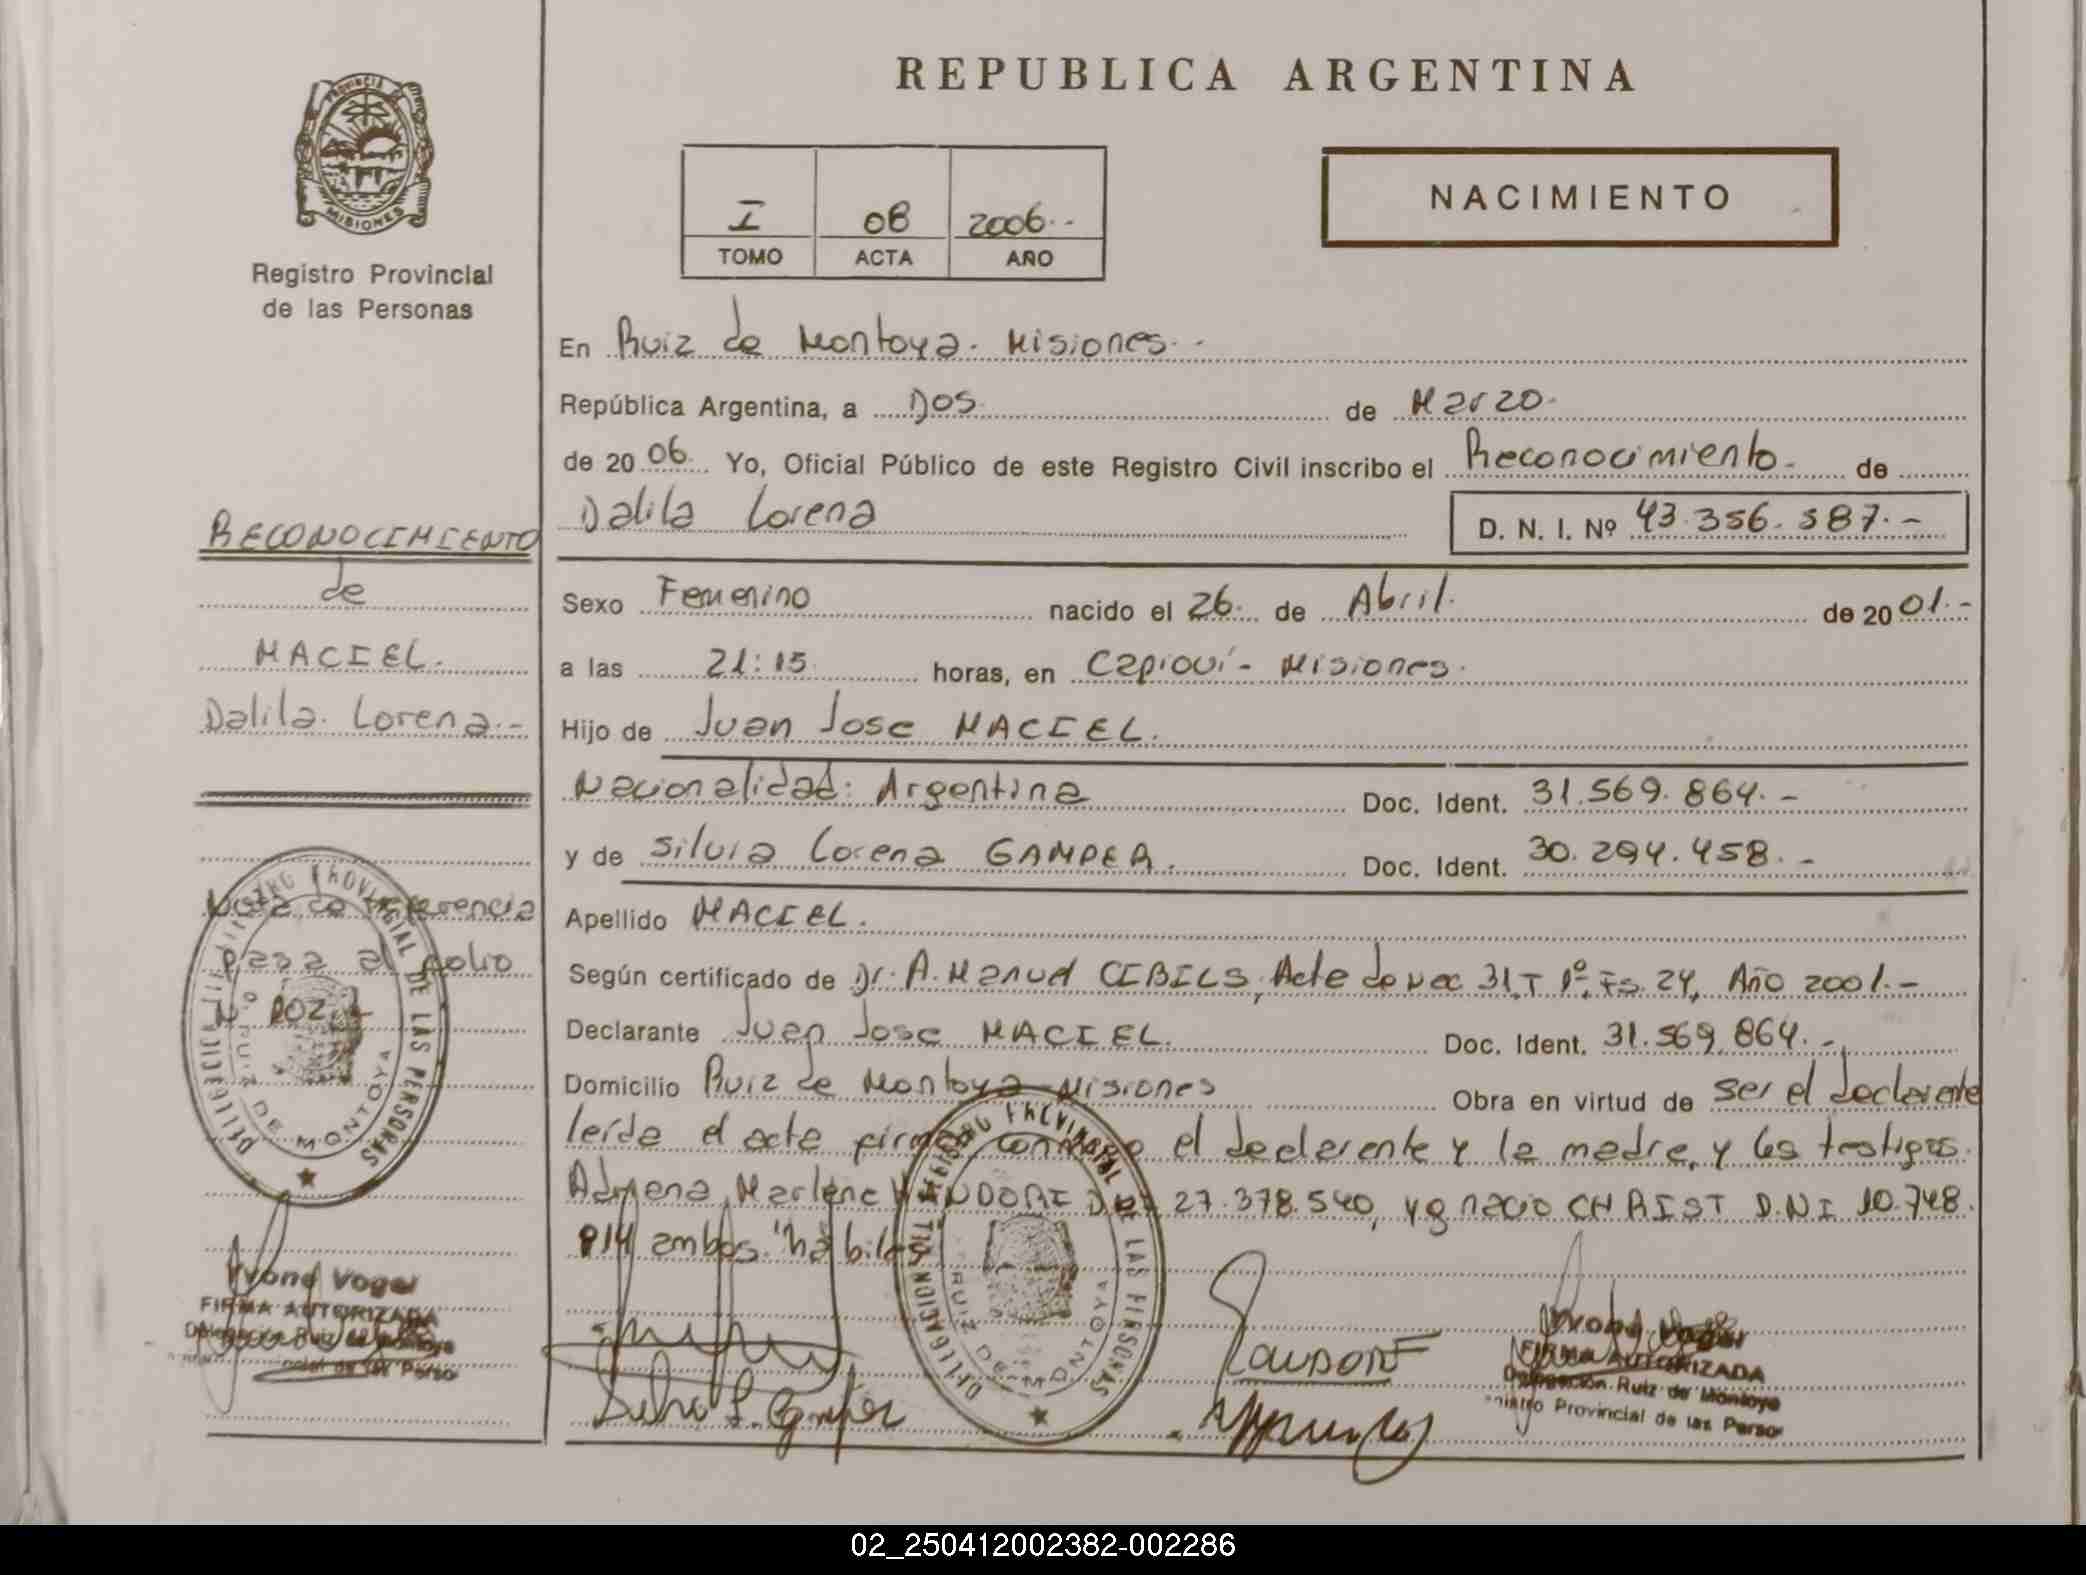 REPUBLICA ARGENTINA
PROVINCIA
MISIONES
Registro Provincial
de las Personas
I 08 2006.-
TOMO ACTA AÑO
NACIMIENTO
En Ruiz de Montoya. Misiones.-
República Argentina, a Dos de Marzo.
de 2006. Yo, Oficial Público de este Registro Civil inscribo el Reconocimiento. de
Dalila Lorena
D. N. I. Nº 43.356.587.-
Sexo Femenino nacido el 26. de Abril. de 2001.-
a las 21:15 horas, en Capioví- Misiones.
Hijo de Juan Jose MACIEL.
Nacionalidad: Argentina Doc. Ident. 31.569.864.-
y de Silvia Lorena GAMPER. Doc. Ident. 30.294.458.-
Apellido MACIEL.
Según certificado de Dr. A. Manuel CIBILS, Acta de Nac 31, T 1º, Fs. 24, Año 2001.-
Declarante Juan Jose MACIEL. Doc. Ident. 31.569.864.-
Domicilio Ruiz de Montoya Misiones Obra en virtud de ser el declarante
leída el acta firma conmigo el declarante y la madre, y los testigos.
Marlene 27.378.540, Ygnacio CHRIST D.NI 10.748.
914 ambos hábiles
RECONOCIMIENTO
de
MACIEL.
Dalila Lorena.-
Nota de referencia
pasa al folio
N 202.-
REGISTRO PROVINCIAL DE LAS PERSONAS
DELEGACION
RUIZ DE MONTOYA
Yvone Voger
FIRMA AUTORIZADA
Delegación Ruiz de Montoya
REGISTRO PROVINCIAL DE LAS PERSONAS
DELEGACION
RUIZ DE MONTOYA
Yvone Voger
FIRMA AUTORIZADA
Delegación Ruiz de Montoya
Provincial de las Person
02_250412002382-002286